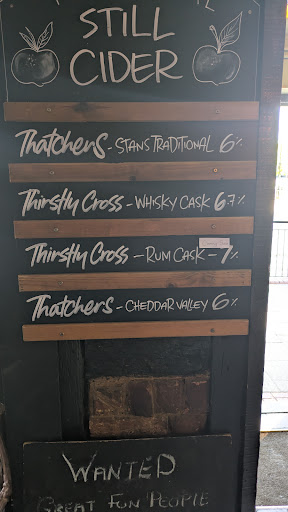 STILL
CIDER
Thatchers - STANS TRADITIONAL 6%
Thirstly Cross - WHISKY CASK 6.7%
Thirstly Cross - RUM CASK - 7%
Thatchers - CHEDDAR VALLEY 6%
WANTED
GREAT FUN PEOPLE